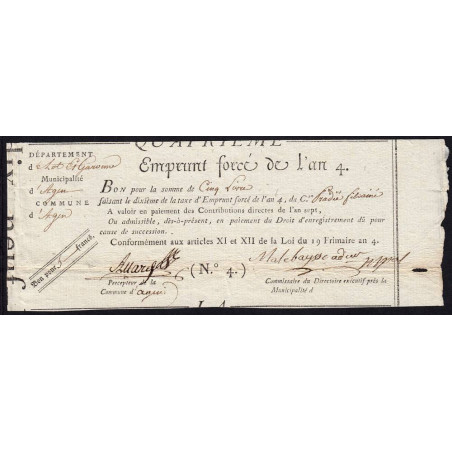 QUATRIÈME
Emprunt forcé de l'an 4.
DÉPARTEMENT
d Lot et Garonne
Municipalité
d Agen
COMMUNE
d Agen
BON pour la somme de Cinq livres
faisant le dixième de la taxe d'Emprunt forcé de l'an 4, du C.en
A valoir en paiement des Contributions directes de l'an sept,
Ou admissible, dès-à-présent, en paiement du Droit d'enregistrement dû pour
cause de succession.
Conformément aux articles XI et XII de la Loi du 19 Frimaire an 4.
Bon pour 5 francs.
(N.° 4.)
Percepteur de la
Commune d'agen
Malebaysse
Commissaire du Directoire exécutif près la
Municipalité d